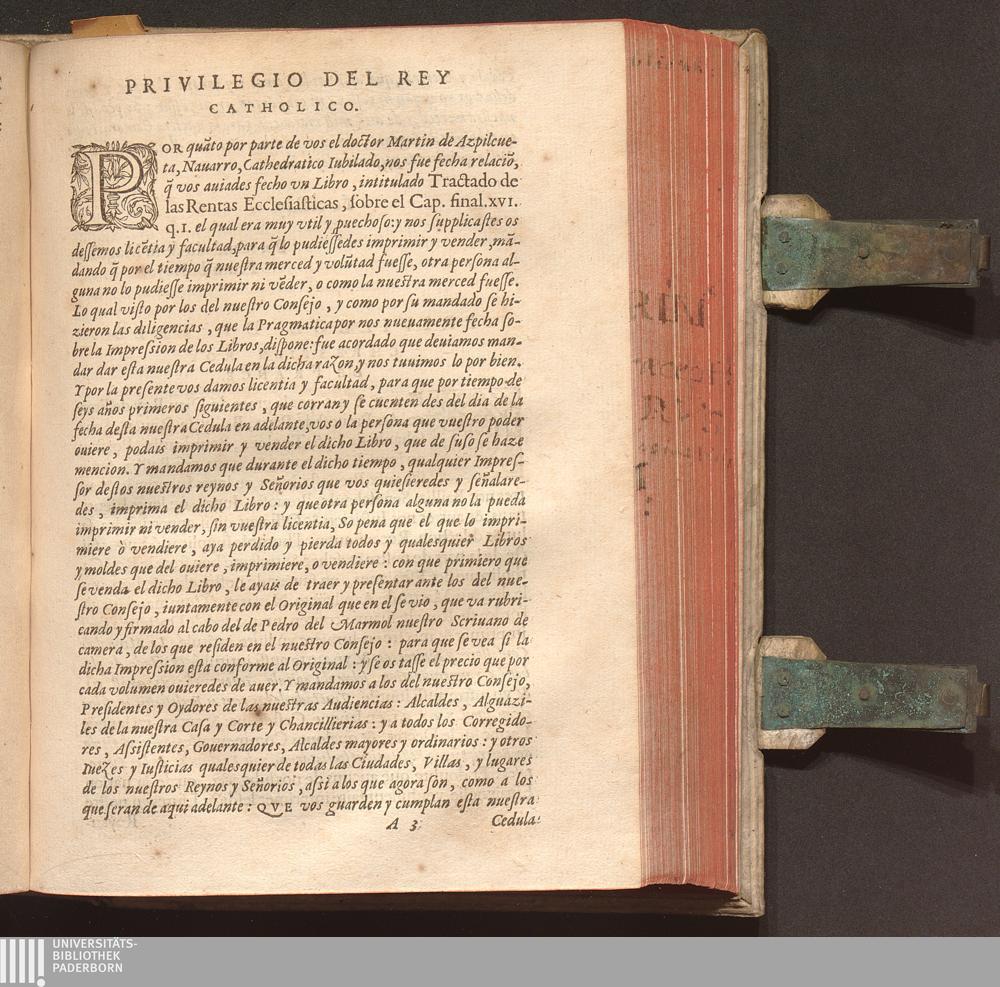 PRIVILEGIO DEL REY
CATHOLICO.
POR quãto por parte de vos el doctor Martin de Azpilcue-
ta, Nauarro, Cathedratico Iubilado, nos fue fecha relaciõ,
q̃ vos auiades fecho vn Libro, intitulado Tractado de
las Rentas Ecclesiasticas, sobre el Cap. final. XVI.
q. I. el qual era muy vtil y ꝓuechoso: y nos supplicastes os
dessemos licẽtia y facultad, para q̃ lo pudiessedes imprimir y vender, mã-
dando q̃ por el tiempo q̃ nuestra merced y volũtad fuesse, otra persona al-
guna no lo pudiesse imprimir ni vẽder, o como la nuestra merced fuesse.
Lo qual visto por los del nuestro Consejo, y como por su mandado se hi-
zieron las diligencias, que la Pragmatica por nos nueuamente fecha so-
bre la Impression de los Libros, dispone: fue acordado que deuiamos man-
dar dar esta nuestra Cedula en la dicha razon, y nos tuuimos lo por bien.
Y por la presente vos damos licentia y facultad, para que por tiempo de
seys años primeros siguientes, que corran y se cuenten des del dia de la
fecha desta nuestra Cedula en adelante, vos o la persona que vuestro poder
ouiere, podais imprimir y vender el dicho Libro, que de suso se haze
mencion. Y mandamos que durante el dicho tiempo, qualquier Impres-
sor destos nuestros reynos y Señorios que vos quiesieredes y señalare-
des, imprima el dicho Libro: y que otra persona alguna no la pueda
imprimir ni vender, sin vuestra licentia, So pena que el que lo impri-
miere ò vendiere, aya perdido y pierda todos y qualesquier Libros
y moldes que del ouiere, imprimiere, o vendiere: con que primiero que
se venda el dicho Libro, le ayais de traer y presentar ante los del nue-
stro Consejo, iuntamente con el Original que en el se vio, que va rubri-
cando y firmado al cabo del de Pedro del Marmol nuestro Scriuano de
camera, de los que residen en el nuestro Consejo: para que se vea si la
dicha Impression esta conforme al Original: y se os tasse el precio que por
cada volumen ouieredes de auer, Y mandamos a los del nuestro Consejo,
Presidentes y Oydores de las nuestras Audiencias: Alcaldes, Alguazi-
les de la nuestra Casa y Corte y Chancillierias: y a todos los Corregido-
res, Assistentes, Gouernadores, Alcaldes mayores y ordinarios: y otros
Iuezes y Iusticias qualesquier de todas las Ciudades, Villas, y lugares
de los nuestros Reynos y Señorios, assi a los que agora son, como a los
que seran de aqui adelante: QVE vos guarden y cumplan esta nuestra
A 3 Cedula
UNIVERSITÄTS-
BIBLIOTHEK
PADERBORN